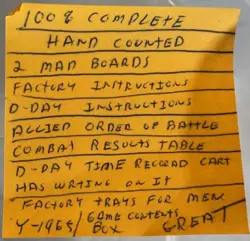 100% COMPLETE
HAND COUNTED
2 MAP BOARDS
FACTORY INSTRUCTIONS
D-DAY INSTRUCTIONS
ALLIED ORDER OF BATTLE
COMBAT RESULTS TABLE
D-DAY TIME RECORD CART
HAS WRITING ON IT
FACTORY TRAYS FOR MEN
Y-1965/ GAME CONTENTS
BOX GREAT